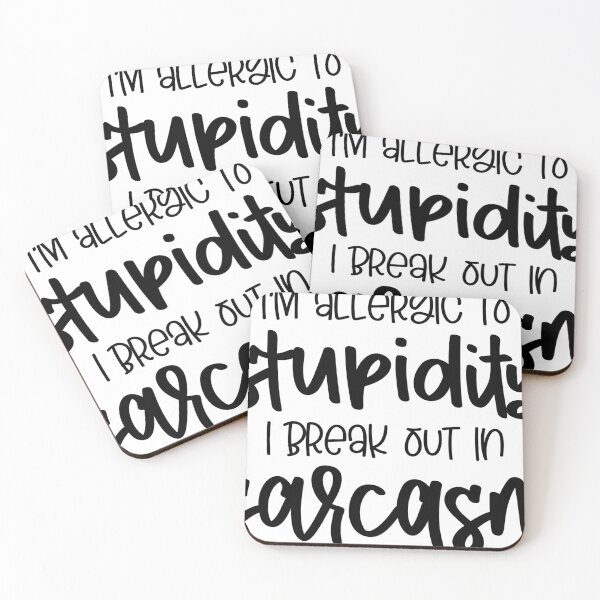 I'M ALLERGIC TO
stupidity
OUT
I'M ALLERGIC TO
stupidity
I BREAK OUT IN
I'M ALLERGIC TO
stupidity
I BREAK OUT IN
sarc
I'M ALLERGIC TO
stupidity
I BREAK OUT IN
sarcasm